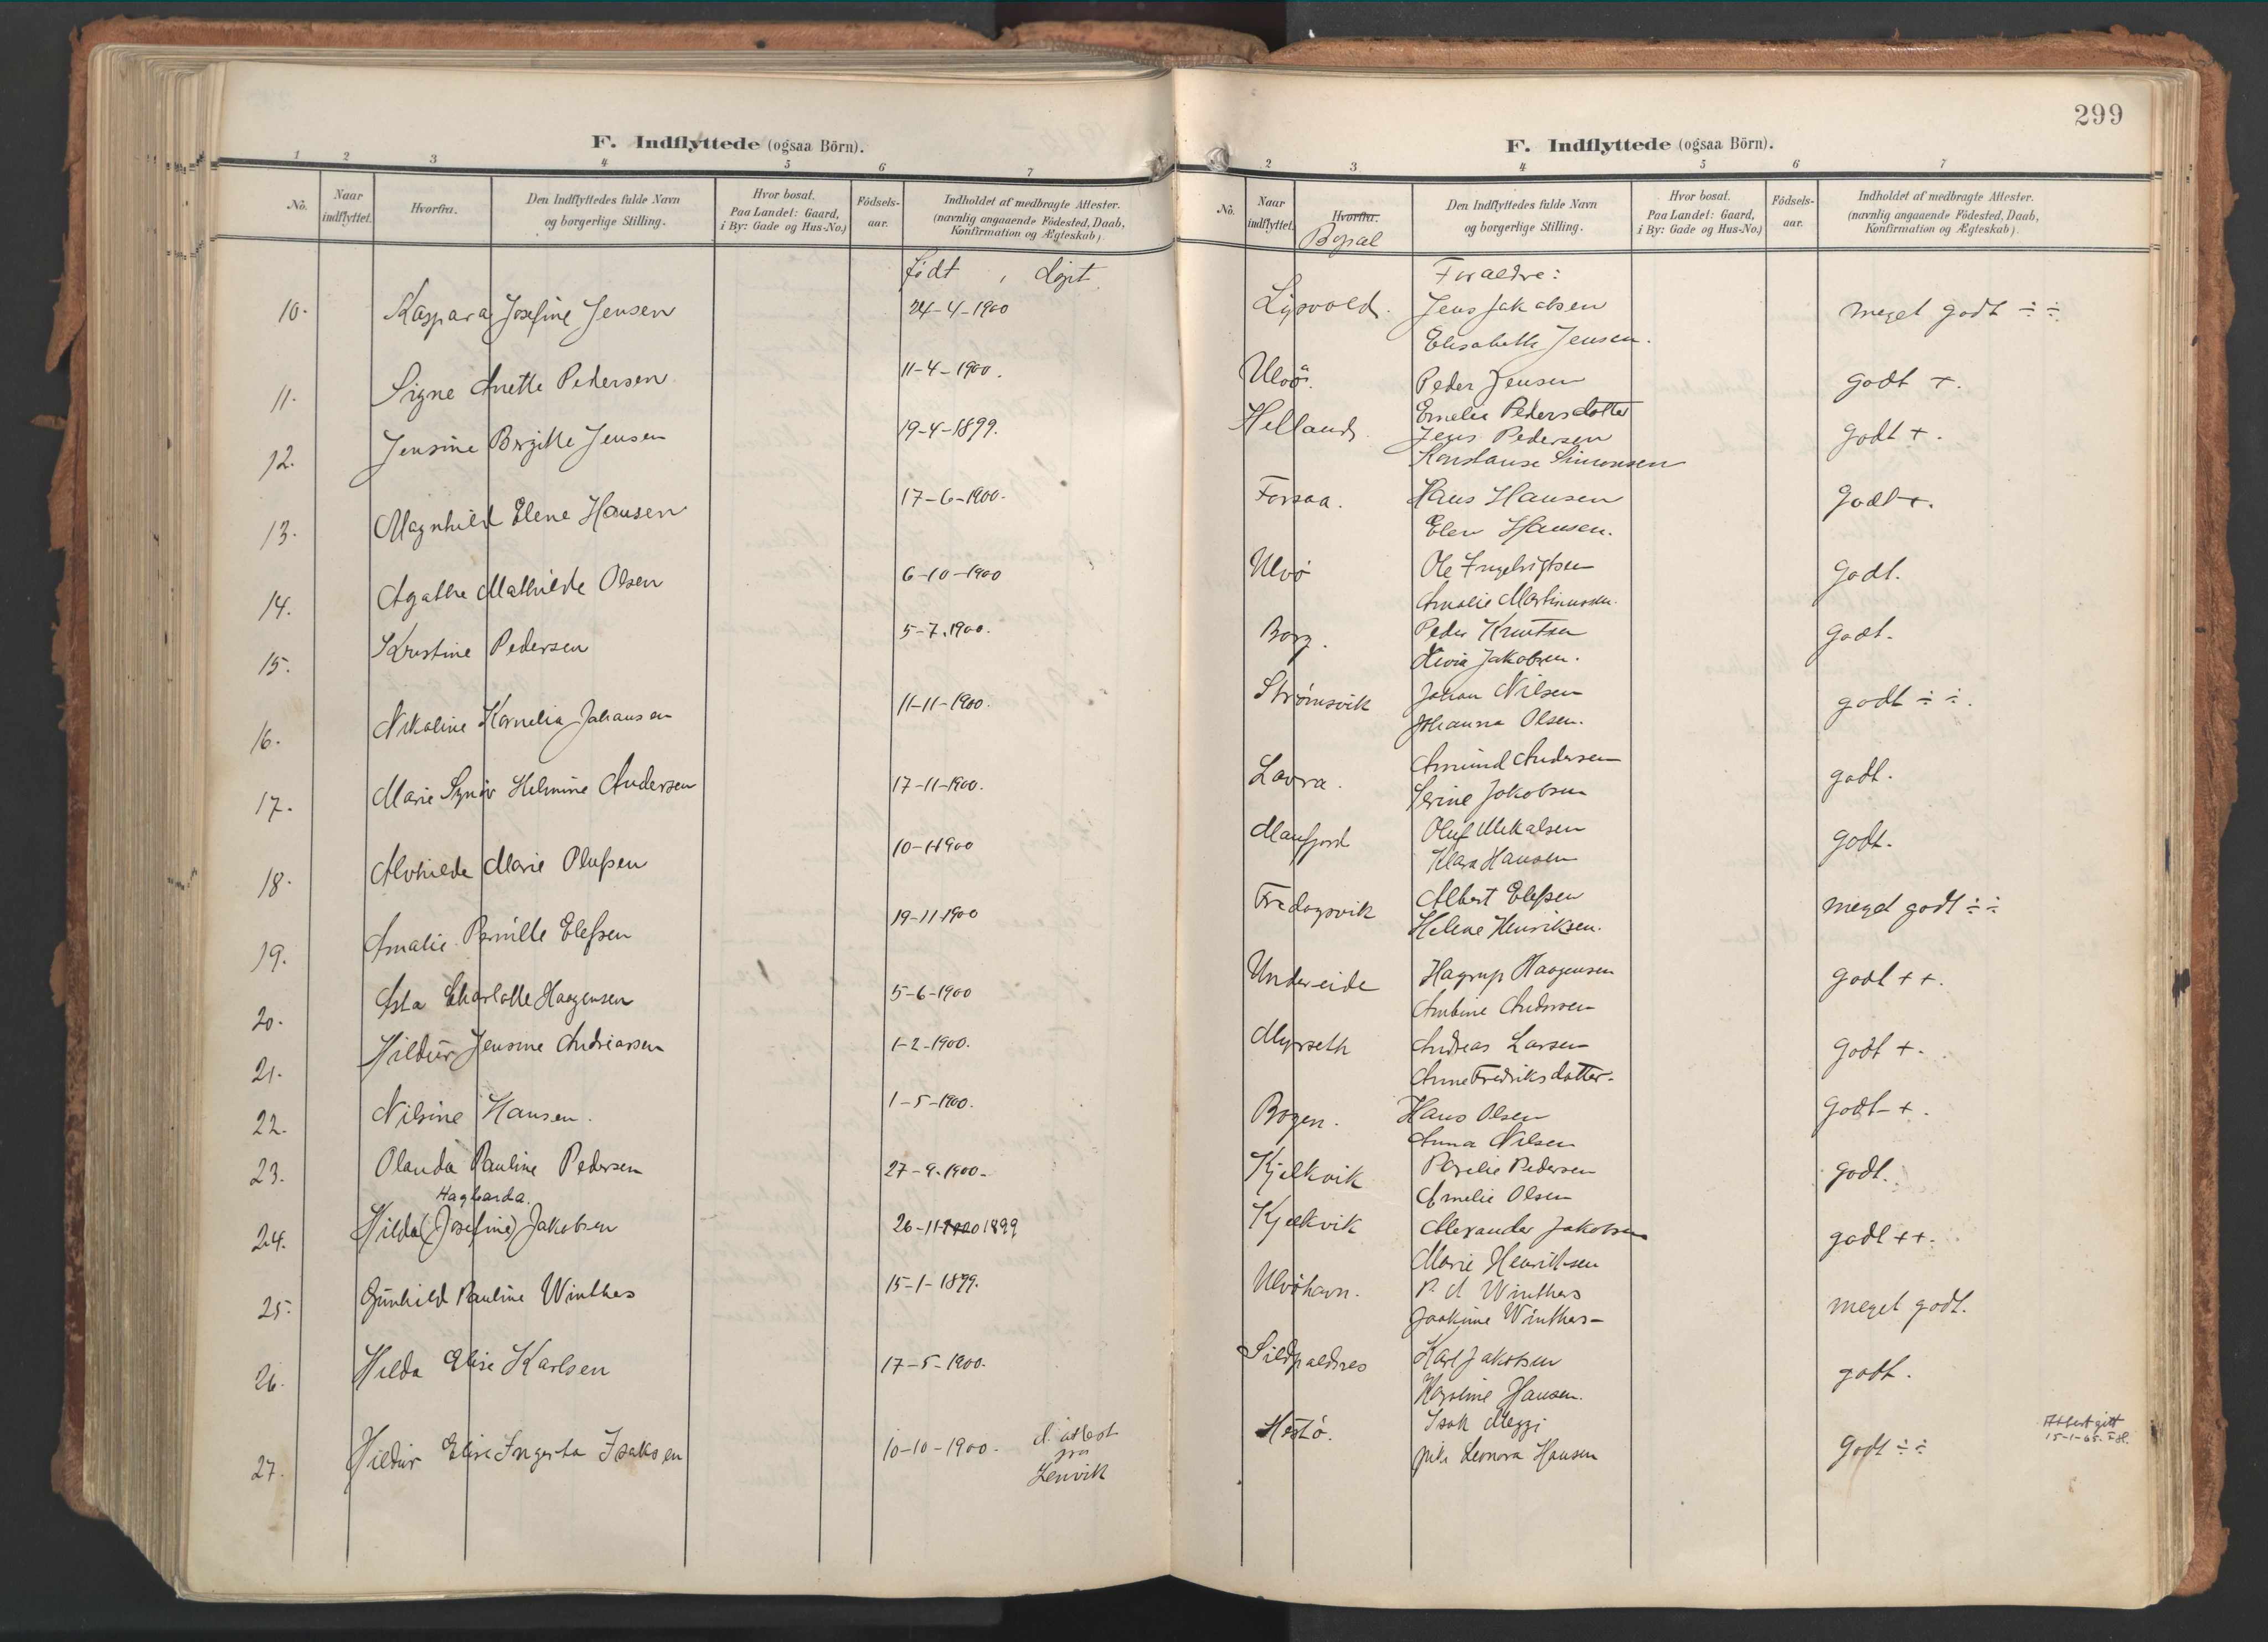 F. Indflyttede (ogsaa Börn).
1 2 3 4 5 6 7
No. Naar indflyttet. Hvorfra. Den Indflyttedes fulde Navn og borgerlige Stilling. Hvor bosat. Paa Landet: Gaard, i By: Gade og Hus-No.) Fødsels-aar. Indholdet af medbragte Attester. (navnlig angaaende Födested, Daab, Konfirmation og Ægteskab).
født , døpt
10. Kaspara Josefine Jensen 24-4-1900
11. Signe Anette Pedersen 11-4-1900.
12. Jensine Birgitte Jensen 19-4-1899.
13. Magnhild Elene Hansen 17-6-1900.
14. Agathe Mathilde Olsen 6-10-1900
15. Kristine Pedersen 5-7.1900.
16. Nikoline Kornelia Johansen 11-11-1900.
17. Marie Synøv Helmine Andersen 17-11-1900.
18. Alvhilde Marie Olufsen 10-1-1900
19. Amalie Pernille Elefsen 19-11-1900
20. Asta Charlotte Haagensen 5-6-1900
21. Hildur Jensine Andreassen 1-2-1900.
22. Nilsine Hansen. 1-5-1900.
23. Olanda Pauline Pedersen 27-9-1900.
Hagbarda.
24. Hilda (Josefine) Jakobsen 26-11-1900 1899
25. Gunhild Pauline Winthers 15-1-1899.
26. Hilda Elise Karlsen 17-5-1900.
27. Hildur Elise Ingerta Isaksen 10-10-1900. d. attest
fra
Lenvik
299
F. Indflyttede (ogsaa Börn).
2 3 4 5 6 7
No. Naar indflyttet. Hvorfra. Den Indflyttedes fulde Navn og borgerlige Stilling. Hvor bosat. Paa Landet: Gaard, i By: Gade og Hus-No.) Fødsels-aar. Indholdet af medbragte Attester. (navnlig angaaende Födested, Daab, Konfirmation og Ægteskab).
Bopæl
Foraldre:
Ligvold. Jens Jakobsen meget godt ÷ ÷
Elisabeth Jensen.
Ulvø. Peder Jensen godt +.
Emelie Pedersdatter
Helland. Jens Pedersen godt +.
Konstanse Simonsen
Forsaa. Hans Hansen godt +.
Elen Hansen.
Ulvø Ole Ingebrigtsen godt.
Amalie Martinussen.
Borg. Peder Knutsen godt.
Jakobsen.
Strømsvik Johan Nilsen godt ÷ ÷.
Johanna Olsen.
Lavra. Amund Andersen godt.
Serine Jakobsen
Manfjord Oluf Mikalsen godt.
Klara Hansen
Fredagsvik Albert Elefsen meget godt ÷ ÷
Helene Henriksen.
Undereide Hagrup Haagensen godt + +.
Andersen
Myrseth Andreas Larsen godt +.
Anne Fredriksdatter.
Bogen. Hans Olsen godt +.
Anna Nilsen
Kjelkvik Perelie Pedersen godt.
Amelie Olsen
Kjelkvik Alexander Jakobsen godt ++.
Marie Henriksen
Ulvøhavn. P. A Winthers meget godt.
Joakime Winthers
Sildpaldnes Karl Jakobsen godt.
Karoline Hansen.
Hestø. Isak Meggi godt ÷ ÷
Leonora Hansen
Attest gitt
15-1-65.